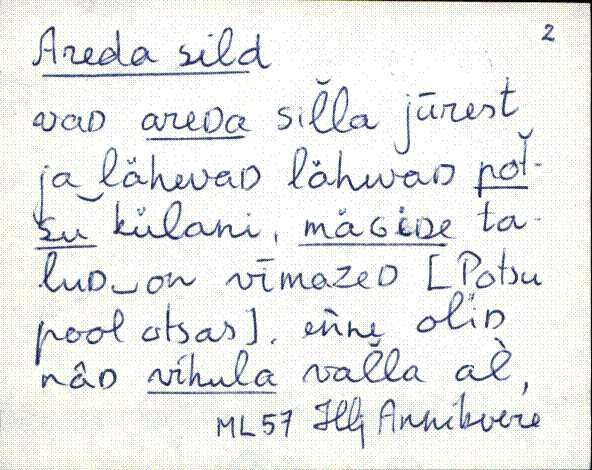 2
Areda sild
vaD areDa sil̆la jūrest
ja‿lähevaD lähwaD pot̆-
su külani, mäGiDe ta-
luD‿on vīmazeD [Potsu
pool otsas]. eǹne oliD
nâD vihula val̆la al̀,
ML57 Hlj Annikvere